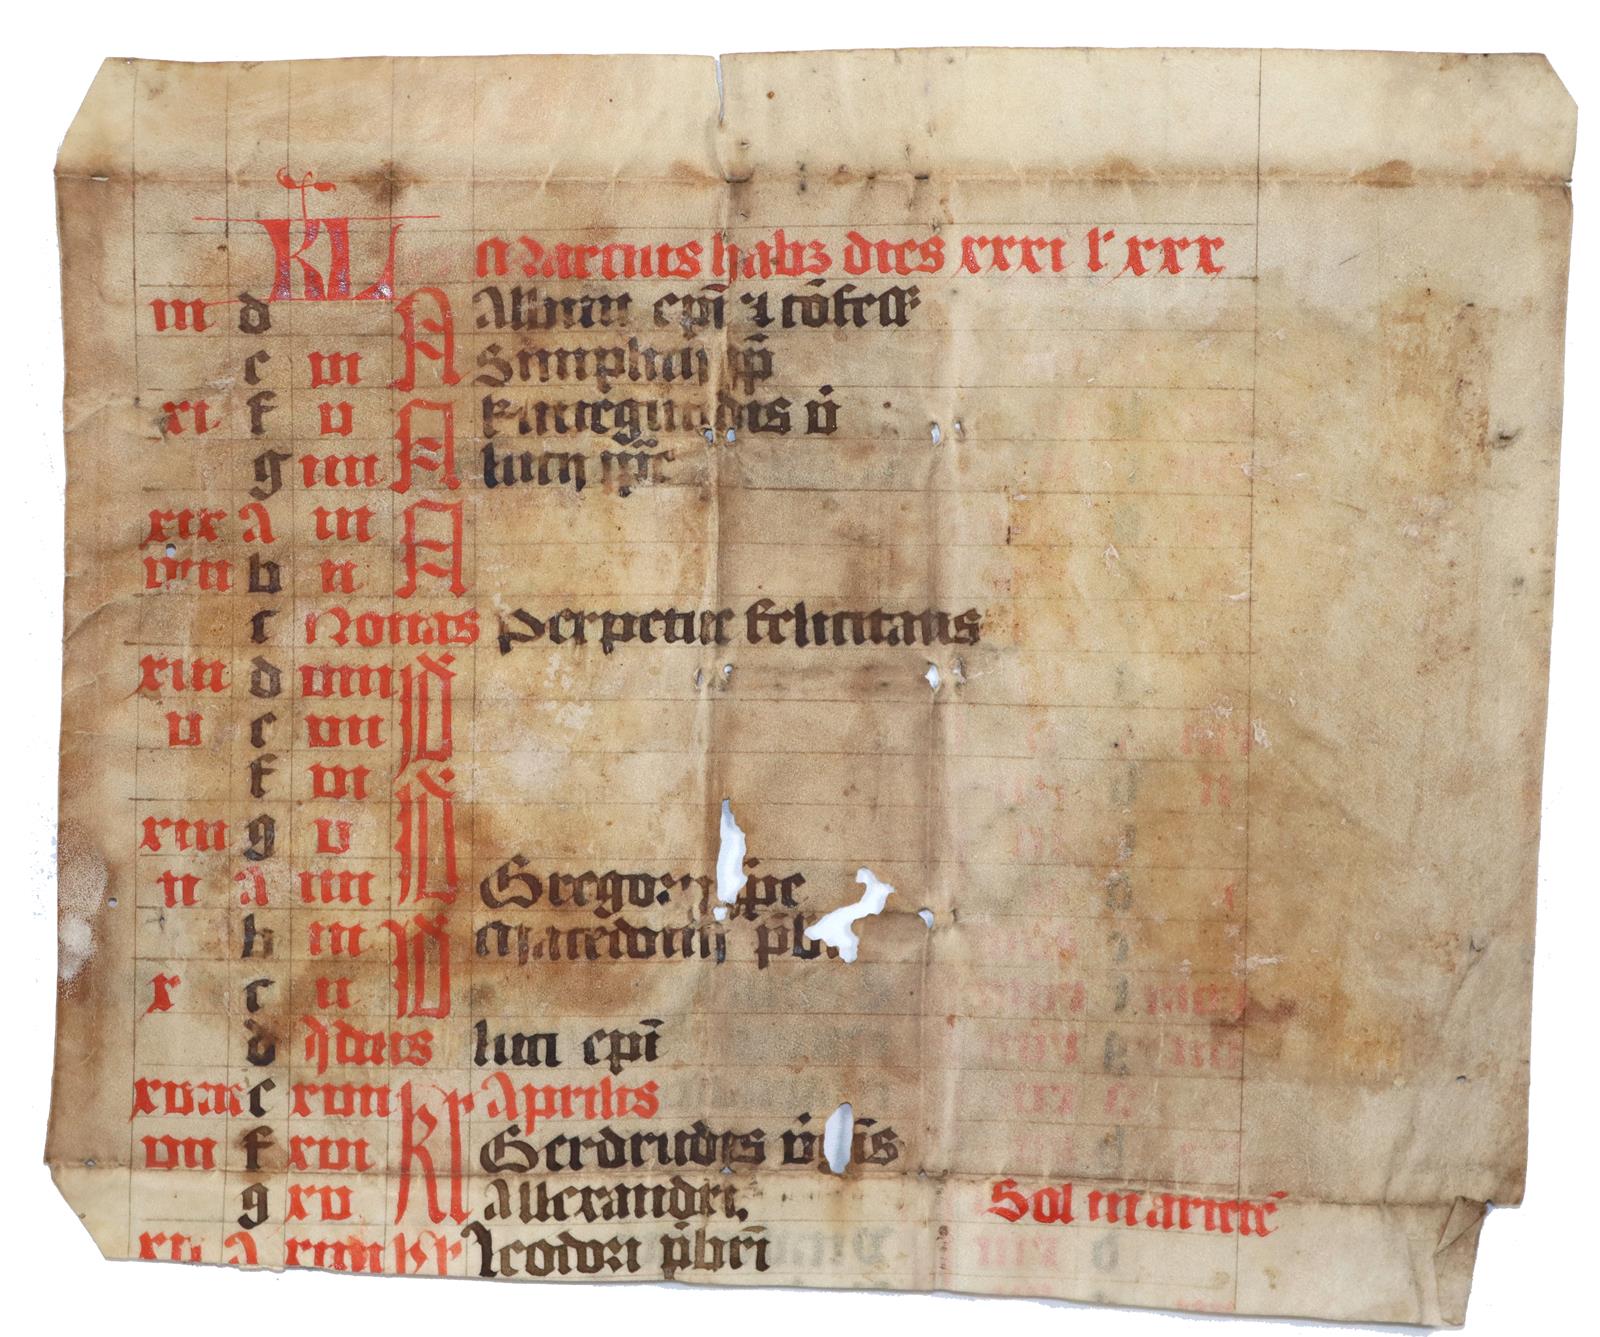 KL Marcius habꝫ dies xxxi lˀ xxx
iii d A Albini epī ⁊ cōfess
e vi Simplicii pp̄
xi f v A kunegundis v̄
g iiii lucii
xix a iii A
viii b ii
c Nonas Perpetue felicitatis
xvi d viii Id
v e vii
f vi Id
xiii g v
ii a iiii Gregorii ppe
b iii Id Macedonii p̄b
x c ii
d Idus lucii epī
xviii e xvii Kl Aprilis
vii f xvi Gerdrudis v̄gīs
g xv Allexandri. Sol in arietē
xv a xiiii kl Teodori p̄bri